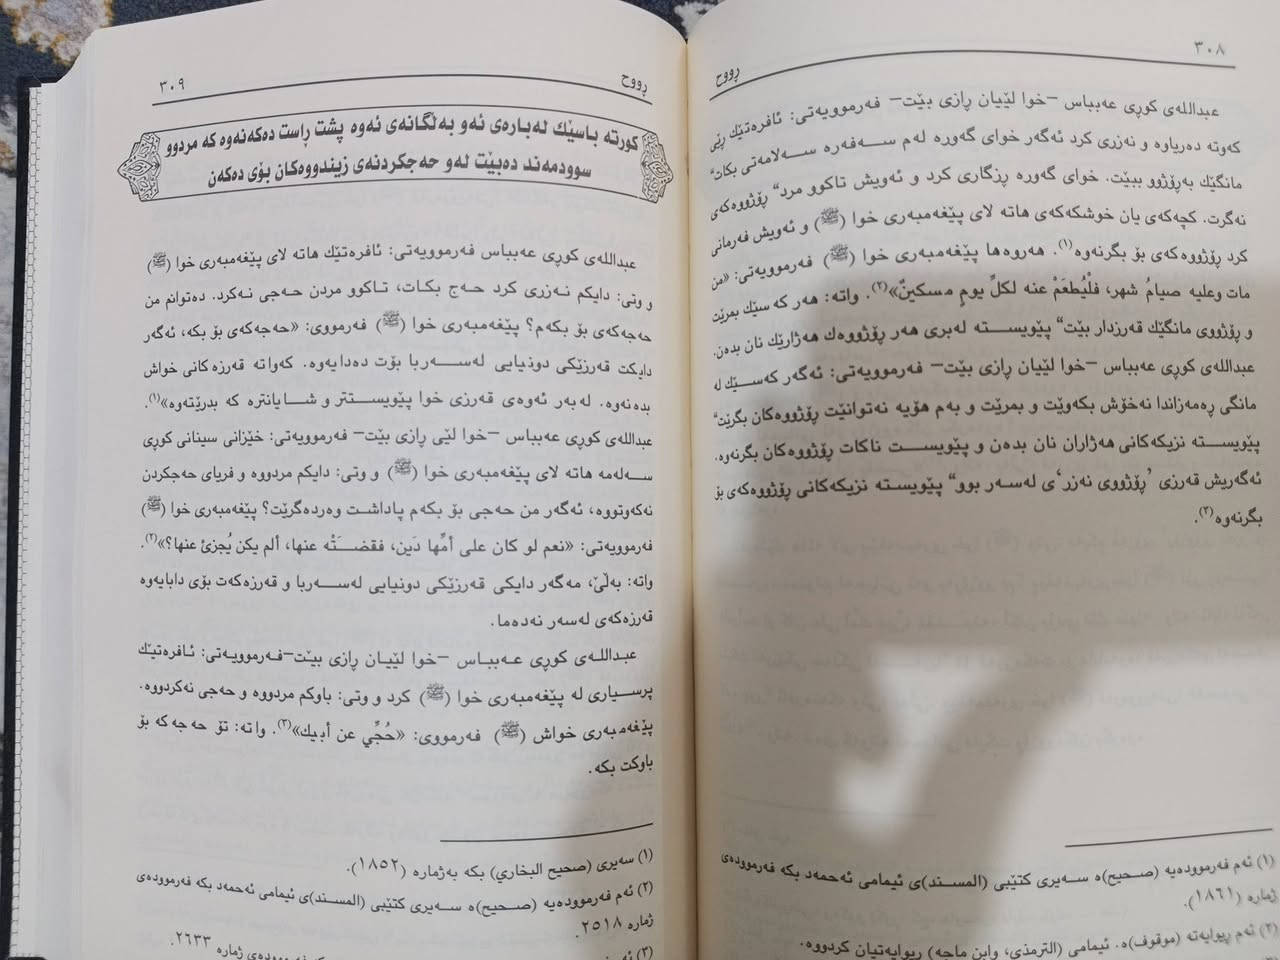 ٣٠٨
ڕووح
عبداللەی کوڕی عەبباس –خوا لێیان ڕازی بێت– فەرموویەتی: ئافرەتێك ڕێی
کەوتە دەریاوە و نەزری کرد ئەگەر خوای گەورە لەم سـەفەرە سـەلامەتی بکات“
مانگێك بەڕۆژوو ببێت. خوای گەورە ڕزگاری کرد و ئەویش تاکوو مرد“ ڕۆژووەکەی
نەگرت. کچەکەی یان خوشکەکەی هاتە لای پێغەمبەری خوا (ﷺ) و ئەویش فەرمانی
کرد ڕۆژووەکەی بۆ بگرنەوە(١). هەروەها پێغەمبەری خوا (ﷺ) فەرموویەتی: «من
مات وعليه صيامُ شهر، فلْيُطعَمْ عنه لكلِّ يومٍ مسكينٌ»(٢). واتە: هەر کە سێك بمرێت
و ڕۆژووی مانگێك قەرزدار بێت“ پێویستە لەبری هەر ڕۆژووەك هەژارێك نان بدەن.
عبداللەی کوڕی عەبباس –خوا لێیان ڕازی بێت– فەرموویەتی: ئەگەر کەسێك لە
مانگی ڕەمەزاندا نەخۆش بکەوێت و بمرێت و بەم هۆیە نەتوانێت ڕۆژووەکان بگرێت“
پێویستە نزیکەکانی هەژاران نان بدەن و پێویست ناکات ڕۆژووەکان بگرنەوە.
ئەگەریش قەرزی ’ڕۆژووی نەزر‘ی لەسەر بوو“ پێویستە نزیکەکانی ڕۆژووەکەی بۆ
بگرنەوە(٣).
(١) ئەم فەرموودەیە (صحیح)ە سەیری کتێبی (المسند)ی ئیمامی ئەحمەد بکە فەرموودەی
ژمارە (١٨٦١).
(٢) ئەم ڕیوایەتە (موقوف)ە. ئیمامی (الترمذي، وابن ماجه) ڕیوایەتیان کردووە.
ڕووح
٣٠٩
کورتە باسێك لەبارەی ئەو بەڵگانەی ئەوە پشت ڕاست دەکەنەوە کە مردوو
سوودمەند دەبێت لەو حەجکردنەی زیندووەکان بۆی دەکەن
عبداللەی کوڕی عەبباس فەرموویەتی: ئافرەتێك هاتە لای پێغەمبەری خوا (ﷺ)
و وتی: دایکم نەزری کرد حەج بکات، تاکوو مردن حەجی نەکرد. دەتوانم من
حەجەکەی بۆ بکەم؟ پێغەمبەری خوا (ﷺ) فەرمووی: «حەجەکەی بۆ بکە، ئەگەر
دایکت قەرزێکی دونیایی لەسەربا بۆت دەدایەوە. کەواتە قەرزەکانی خواش
بدەنەوە. لەبەر ئەوەی قەرزی خوا پێویستتر و شایانترە کە بدرێتەوە»(١).
عبداللەی کوڕی عەبباس –خوا لێی ڕازی بێت– فەرموویەتی: خێزانی سینانی کوڕی
سەلەمە هاتە لای پێغەمبەری خوا (ﷺ) و وتی: دایکم مردووە و فریای حەجکردن
نەکەوتووە، ئەگەر من حەجی بۆ بکەم پاداشت وەردەگرێت؟ پێغەمبەری خوا (ﷺ)
فەرموویەتی: «نعم لو كان على أمِّها دَين، فقضَتْه عنها، ألم يكن يُجزئ عنها؟»(٢).
واتە: بەڵێ، مەگەر دایکی قەرزێکی دونیایی لەسەربا و قەرزەکەت بۆی دابایەوە
قەرزەکەی لەسەر نەدەما.
عبداللەی کوڕی عەبباس –خوا لێیان ڕازی بێت–فەرموویەتی: ئافرەتێك
پرسیاری لە پێغەمبەری خوا (ﷺ) کرد و وتی: باوکم مردووە و حەجی نەکردووە.
پێغەمبەری خواش (ﷺ) فەرمووی: «حُجِّي عن أبيك»(٣). واتە: تۆ حەجەکە بۆ
باوکت بکە.
(١) سەیری (صحيح البخاري) بکە بەژمارە (١٨٥٢).
(٢) ئەم فەرموودەیە (صحیح)ە سەیری کتێبی (المسند)ی ئیمامی ئەحمەد بکە فەرموودەی
ژمارە ٢٥١٨.
(٣) ژمارە ٢٦٣٣.